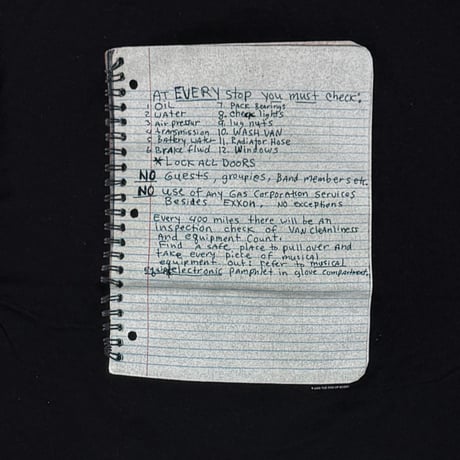 AT EVERY stop you must check:
1 OIL 7. PACK Bearings
2 WATER 8. check lights
3 Air pressur 9. lug nuts
4 transmission 10. WASH VAN
5 Battery water 11. Radiator Hose
6 Brake fluid 12. Windows
*LOCK ALL DOORS
NO Guests, groupies, BAnd members etc.
NO use of Any Gas Corporation Services
Besides EXXON, NO exceptions
Every 400 miles there will be An
inspection check of VAN cleanliness
And equipment Count.
Find A safe place to pull over And
take every piece of musical
equipment out: refer to musical
electronic pamphlet in glove compartment.